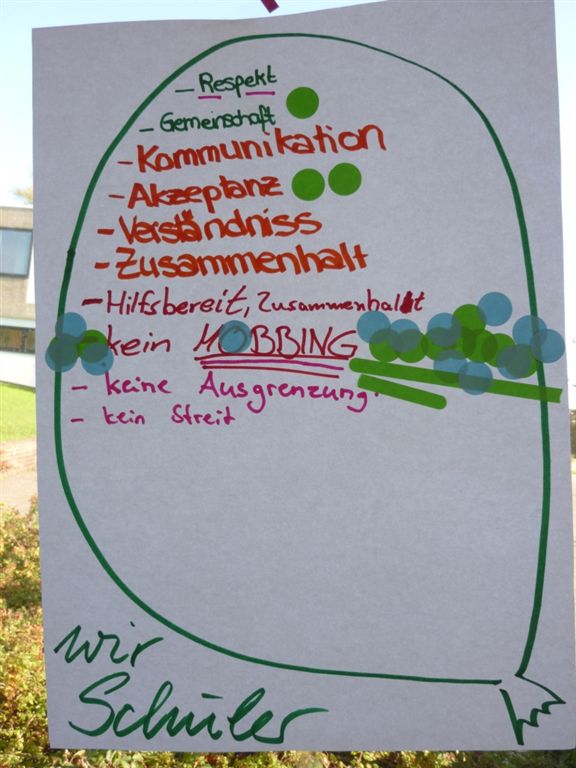 - Respekt
- Gemeinschaft
- Kommunikation
- Akzeptanz
- Verständniss
- Zusammenhalt
- Hilfsbereit, Zusammenhalt
- kein MOBBING
- keine Ausgrenzung.
- kein Streit
wir
Schüler